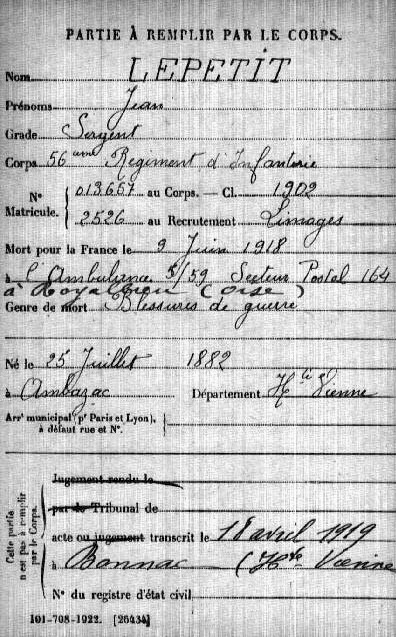 PARTIE À REMPLIR PAR LE CORPS.
Nom LEPETIT
Prénoms Jean
Grade Sergent
Corps 56ème Régiment d'Infanterie
N° Matricule. 013657 au Corps. — Cl. 1902
2526 au Recrutement Limoges
Mort pour la France le 9 Juin 1918
à l'Ambulance 5/59 Secteur Postal 164
à Royallieu (Oise)
Genre de mort Blessures de guerre
Né le 25 Juillet 1882
à Ambazac Département Hte Vienne
Arrt municipal (pr Paris et Lyon), à défaut rue et N°.
Cette partie n'est pas à remplir par le Corps.
Jugement rendu le
par le Tribunal de
acte ou jugement transcrit le 18 avril 1919
à Bonnac (Hte Vienne
N° du registre d'état civil
101-708-1922. [26434]